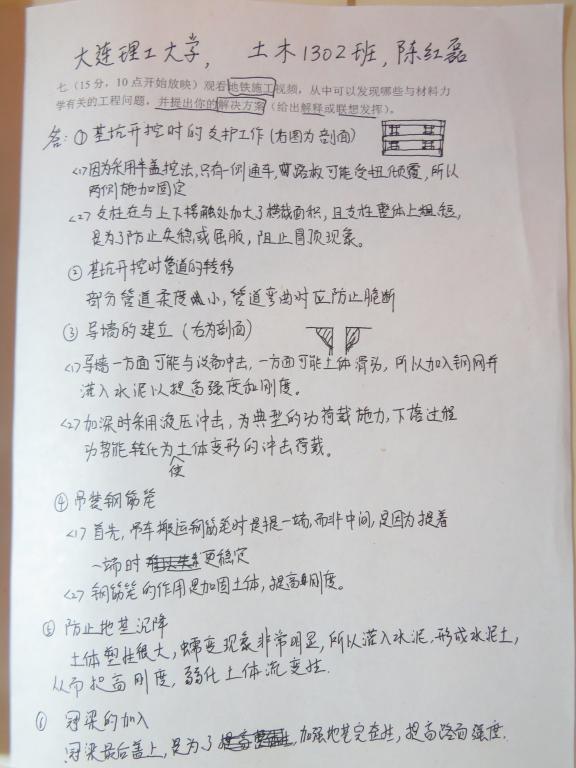 大连理工大学， 土木1302班，陈红磊
七、(15分，10点开始放映）观看地铁施工视频，从中可以发现哪些与材料力
学有关的工程问题，并提出你的解决方案（给出解释或联想发挥）。
答：① 基坑开挖时的支护工作（右图为剖面）
<1> 因为采用半盖挖法，只有一侧通车，路板可能受扭倾覆，所以
两侧施加固定
<2> 支柱在与上下接触处加大了横截面积，且支柱整体上粗短，
是为了防止失稳或屈服，阻止冒顶现象。
② 基坑开挖时管道的转移
部分管道柔度小，管道弯曲时应防止脆断
③ 导墙的建立（右为剖面）
<1> 导墙一方面可能与设备冲击，一方面可能土体滑动，所以加入钢网并
灌入水泥以提高强度和刚度。
<2> 加深时采用液压冲击，为典型的动荷载施力，下落过程
动势能转化为使土体变形的冲击荷载。
④ 吊装钢筋笼
<1> 首先，吊车搬运钢筋笼时是提一端，而非中间，是因为提着
一端时更稳定
<2> 钢筋笼的作用是加固土体，提高刚度。
⑤ 防止地基沉降
土体塑性很大，蠕变现象非常明显，所以灌入水泥，形成水泥土，
从而提高刚度，弱化土体流变性.
⑥ 冠梁的加入
冠梁最后盖上，是为了加强地基完整性，提高路面强度.